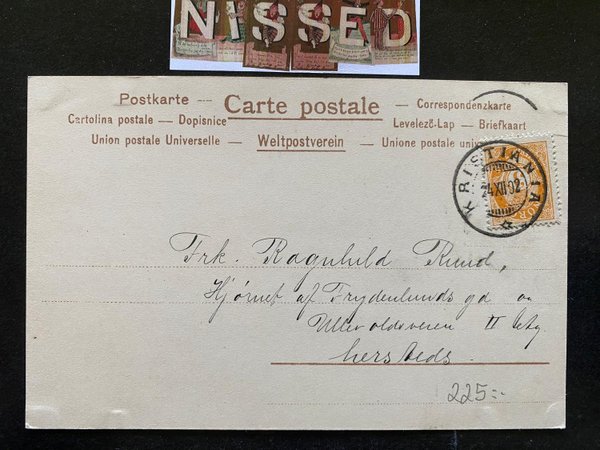 NISSED
Postkarte — Carte postale — Correspondenzkarte
Cartolina postale — Dopisnice Levelező-Lap — Briefkaart
Union postale Universelle — Weltpostverein — Unione postale
KRISTIANIA
24 XII 02
Frk. Ragnhild Ruud,
Hjørnet af Frydenlundsgd og
Ullevoldsveien II Etg
hersteds.
225:-